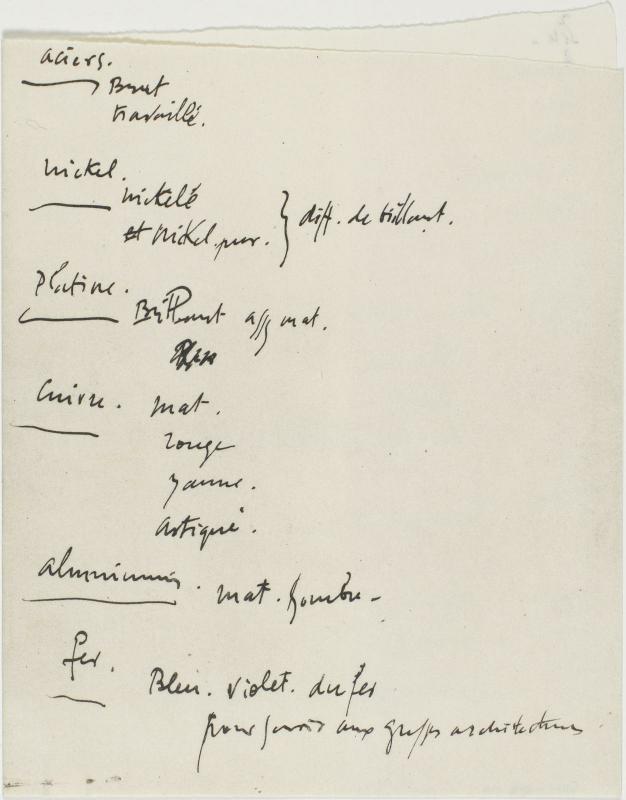 aciers.
Brut
travaillé.
nickel.
nickelé
et nickel pur. } diff. de brillant.
Platine.
Brillant assez mat.
Cuivre. mat.
rouge
jaune.
astiqué.
aluminium. mat. sombre -
fer.
Bleu. violet. du fer
pour servir aux architectures